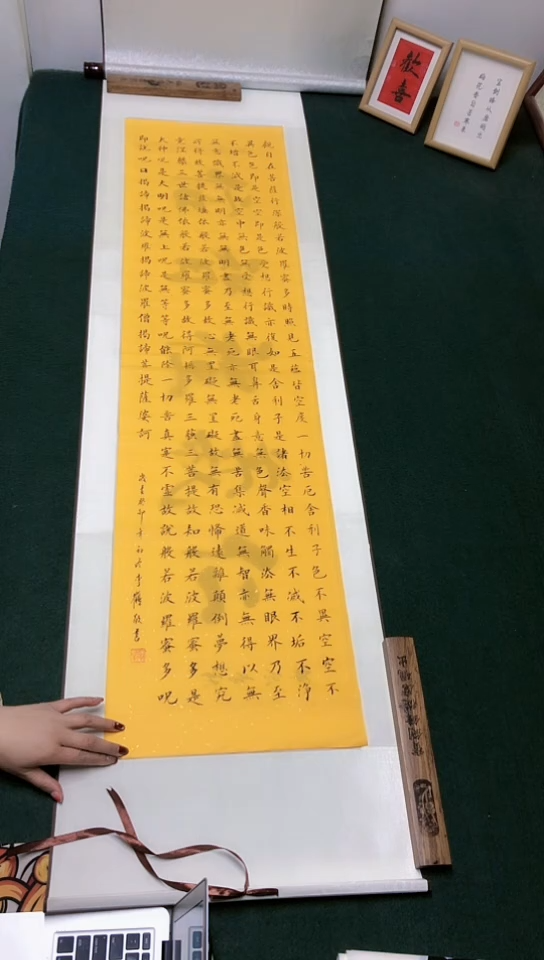 觀自在菩薩行深般若波羅蜜多時照見五蘊皆空度一切苦厄舍利子色不異空空不
異色色即是空空即是色受想行識亦復如是舍利子是諸法空相不生不滅不垢不淨
不增不減是故空中無色無受想行識無眼耳鼻舌身意無色聲香味觸法無眼界乃至
無意識界無無明亦無無明盡乃至無老死亦無老死盡無苦集滅道無智亦無得以無
所得故菩提薩埵依般若波羅蜜多故心無罣礙無罣礙故無有恐怖遠離顛倒夢想究
竟涅槃三世諸佛依般若波羅蜜多故得阿耨多羅三藐三菩提故知般若波羅蜜多是
大神呪是大明呪是無上呪是無等等呪能除一切苦真實不虛故說般若波羅蜜多呪
即說呪曰揭諦揭諦波羅揭諦波羅僧揭諦菩提薩婆訶
癸卯年初冬李敬書
歡喜